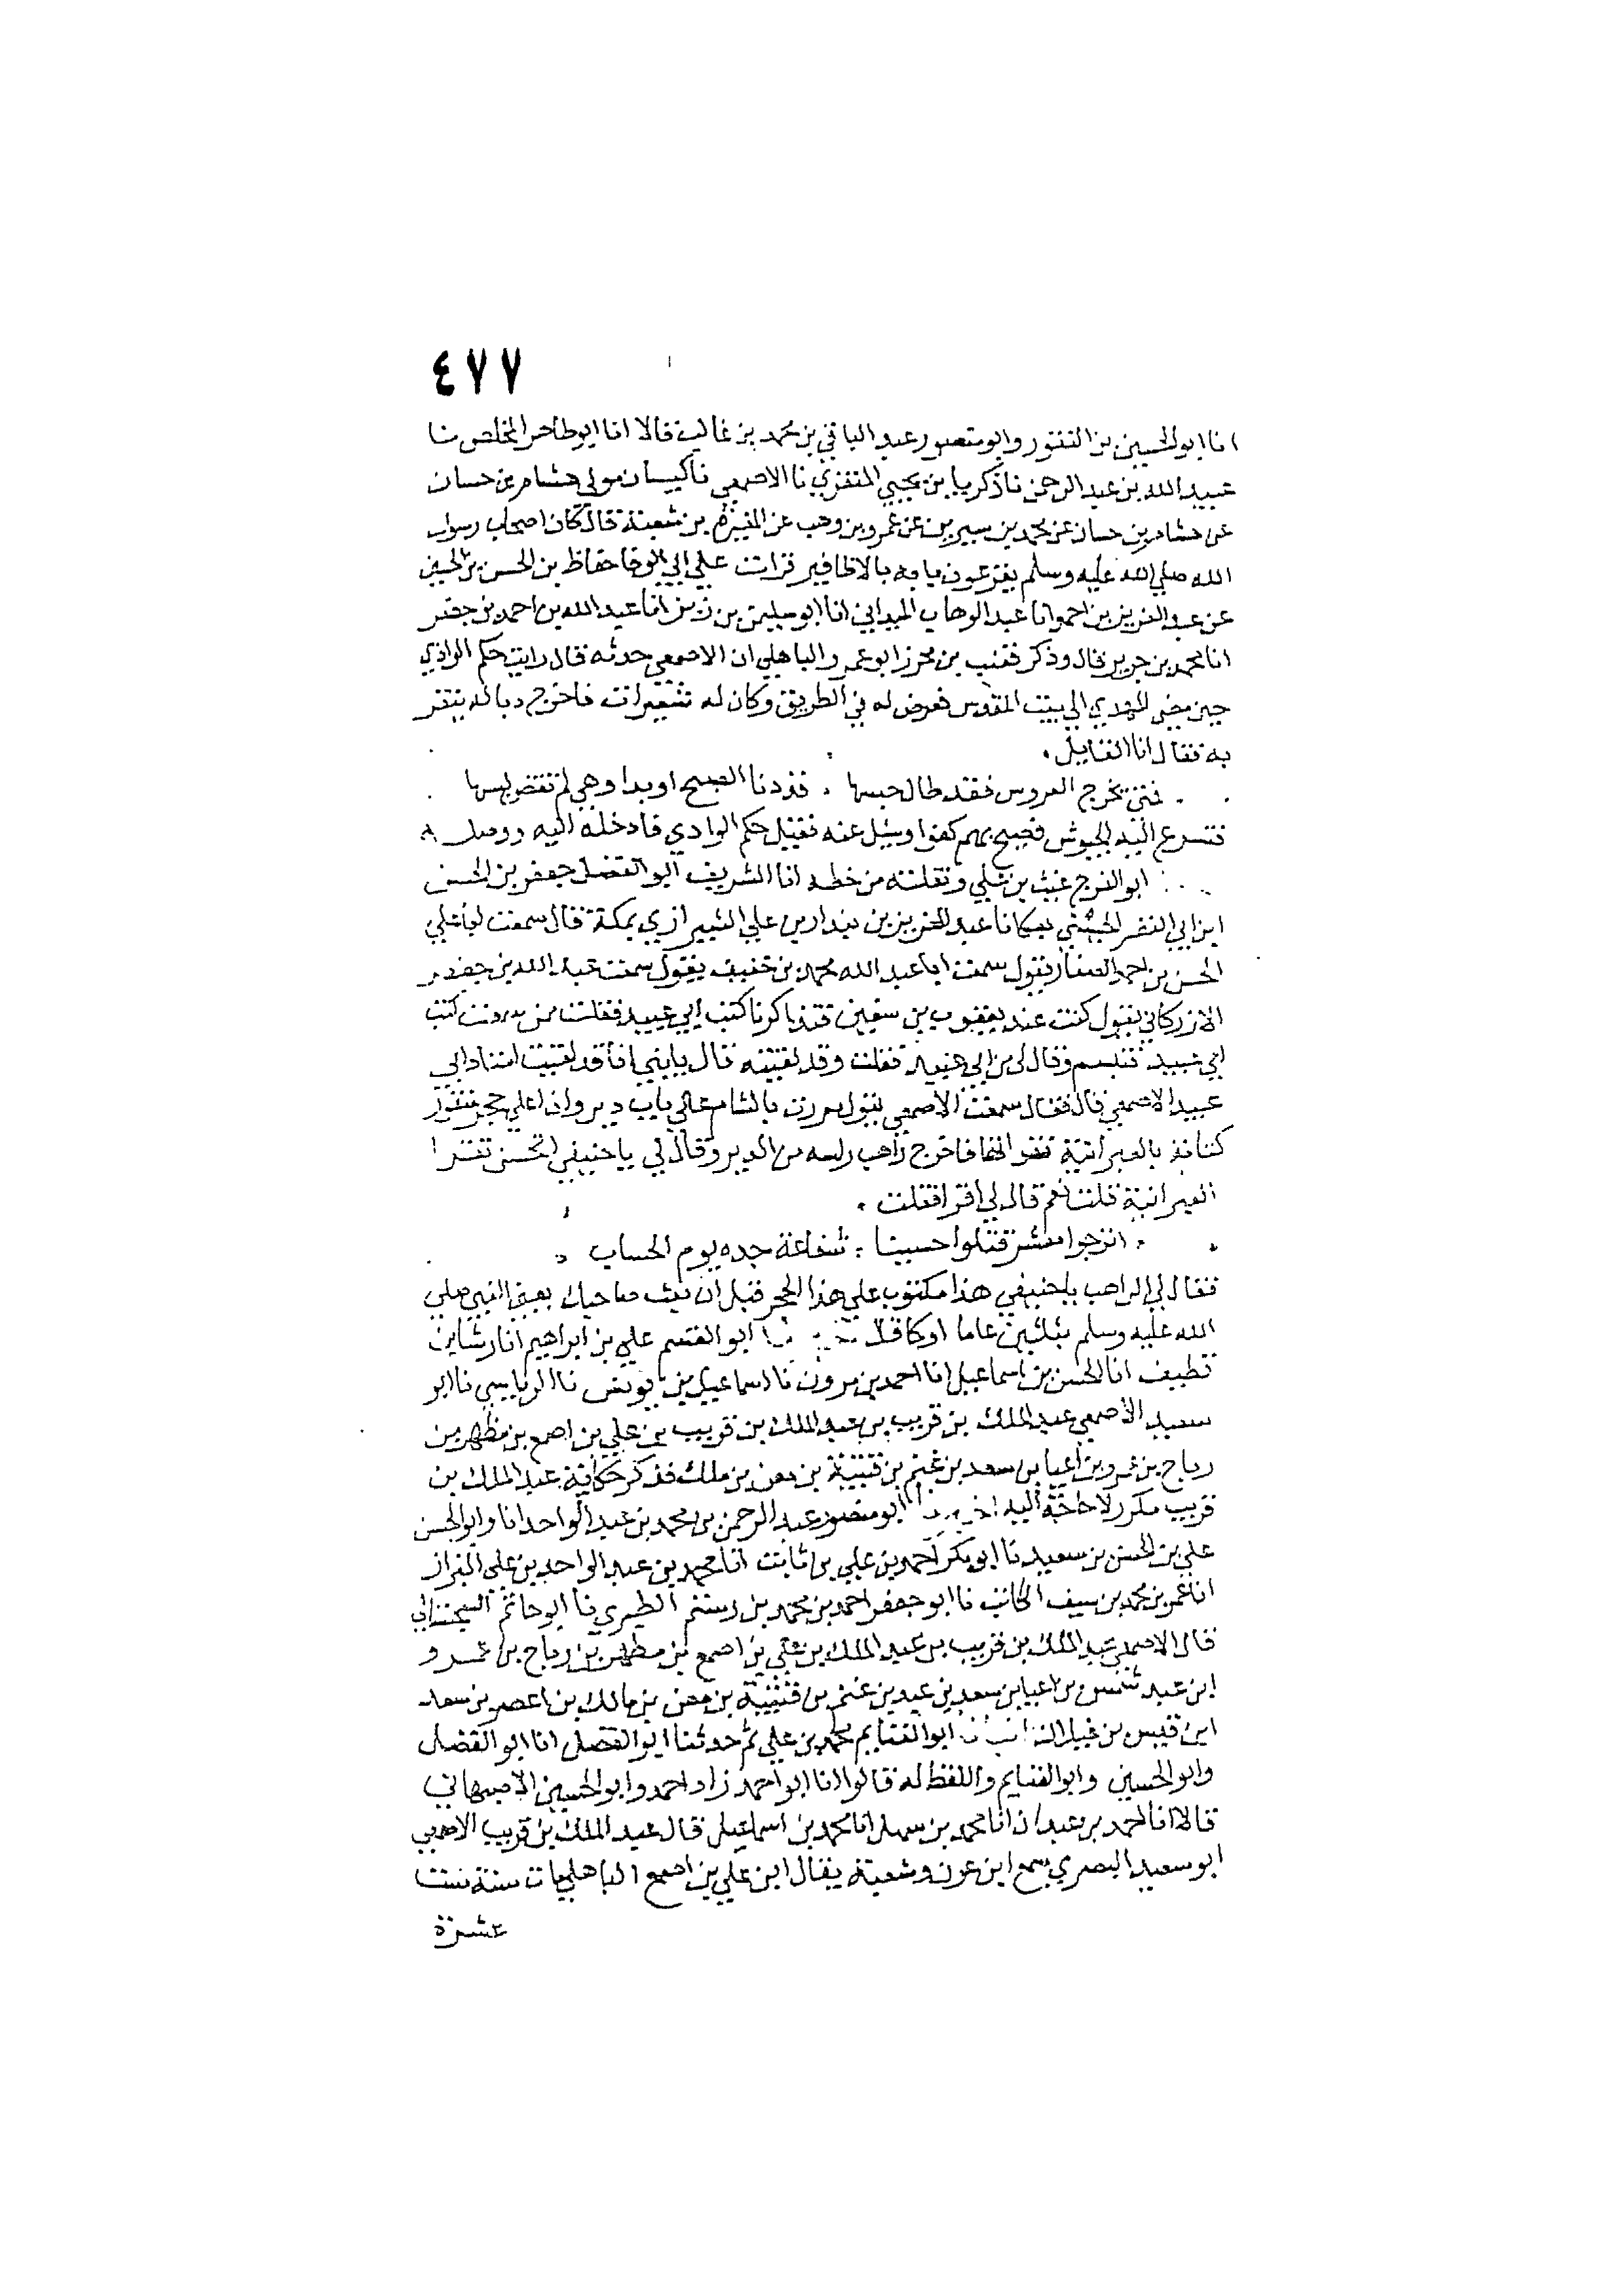 ٤٧٧
انا ابو الحسين بن النقور وابو منصور عبد الباقي بن محمد بن غالب قالا انا ابو طاهر المخلص نا
عبيد الله بن عبد الرحمن نا زكريا بن يحيي المنقري نا الاصمعي نا كيسان مولي هشام بن حسان
عن هشام بن حسان عن محمد بن سيرين عن عمرو بن وهب عن المغيرة بن شعبة قال كان اصحاب رسول
الله صلي الله عليه وسلم يقرعون بابه بالاظافير قرات علي ابي الوفا حفاظ بن الحسن بن الحسين
عن عبد العزيز بن احمد انا عبد الوهاب الميداني انا ابو سليمن بن زبر انا عبد الله بن احمد بن جعفر
انا محمد بن جرير قال وذكر قعنب بن محرز ابو عمرو الباهلي ان الاصمعي حدثه قال رايت حكم الوادي
حين مضي المهدي الي بيت المقدس فعرض له في الطريق وكان له شعيرات فاخرج دبا له ينقر
به فقال انا القايل
فمتي تخرج العروس فقد طال حبسها قد دنا الصبح او بدا وهي لم تقض لبسها
فتسرع اليه الجيوش فصيح بهم كفوا وسيل عنه فقيل حكم الوادي فادخله اليه ووصله
ابو الفرج غيث بن علي ونقلته من خطه انا الشريف ابو الفضل جعفر بن الحسن
ابن ابي النضر انا عبد العزيز بن بندار بن علي الشيرازي بمكة قال سمعت ابا علي
الحسن بن احمد الصفار يقول سمعت ابا عبد الله محمد بن خفيف يقول سمعت عبد الله بن جعفر
الازركاني يقول كنت عند يعقوب بن سفين فتذاكرنا كتب ابي عبيد فقلت كتب
ابي عبيد فتبسم وقال لي من ابي عبيد فقلت وقد لقيته قال يا بني انا قد لقيت استاذ ابي
عبيد الاصمعي قال فقال سمعت الاصمعي يقول مررت بالشام علي باب دير واذا علي حجر منقور
كتابة بالعبرانية فاخرج راهب راسه من الدير وقال لي يا حنيفي اتحسن تقرا
العبرانية قلت نعم قال لي اقرا فقلت
اترجوا معشر قتلوا حسينا شفاعة جده يوم الحساب
فقال لي الراهب يا حنيفي هذا مكتوب علي هذا الحجر قبل ان يبعث صاحبك يعني النبي صلي
الله عليه وسلم بثلثين عاما او كما قال ابو القسم علي بن ابراهيم انا رشا بن
نظيف انا الحسن بن اسماعيل انا احمد بن مرون نا اسماعيل بن يونس نا الرياشي نا ابو
سعيد الاصمعي عبد الملك بن قريب بن عبد الملك بن قريب بن علي بن اصمع بن مظهر بن
رباح بن عمرو بن اعيا بن سعد بن غنم بن قتيبة بن معن بن ملك فذكر حكاية عبد الملك بن
قريب مكرر لا حاجة اليه ابو منصور عبد الرحمن بن محمد بن عبد الواحد انا وابو الحسن
علي بن الحسن بن سعيد نا ابو بكر احمد بن علي بن ثابت انا محمد بن عبد الواحد بن علي البزاز
انا عمر بن محمد بن سيف الكاتب نا ابو جعفر احمد بن محمد بن رستم الطبري نا ابو حاتم السجستاني
قال الاصمعي عبد الملك بن قريب بن عبد الملك بن علي بن اصمع بن مظهر بن رباح بن عمرو
ابن عبد شمس بن اعيا بن سعد بن عبد بن غنم بن قتيبة بن معن بن مالك بن اعصر بن سعد
ابن قيس بن عيلان ابو الغنايم محمد بن علي ثم حدثنا ابو الفضل انا ابو الفضل
وابو الحسين وابو الغنايم واللفظ له قالوا انا ابو احمد زاد احمد وابو الحسين الاصبهاني
قالا انا احمد بن عبدان انا محمد بن سهل انا محمد بن اسماعيل قال عبد الملك بن قريب الاصمعي
ابو سعيد البصري سمع ابن عون وشعبة يقال ابن علي بن اصمع الباهلي مات سنة ست
عشرة